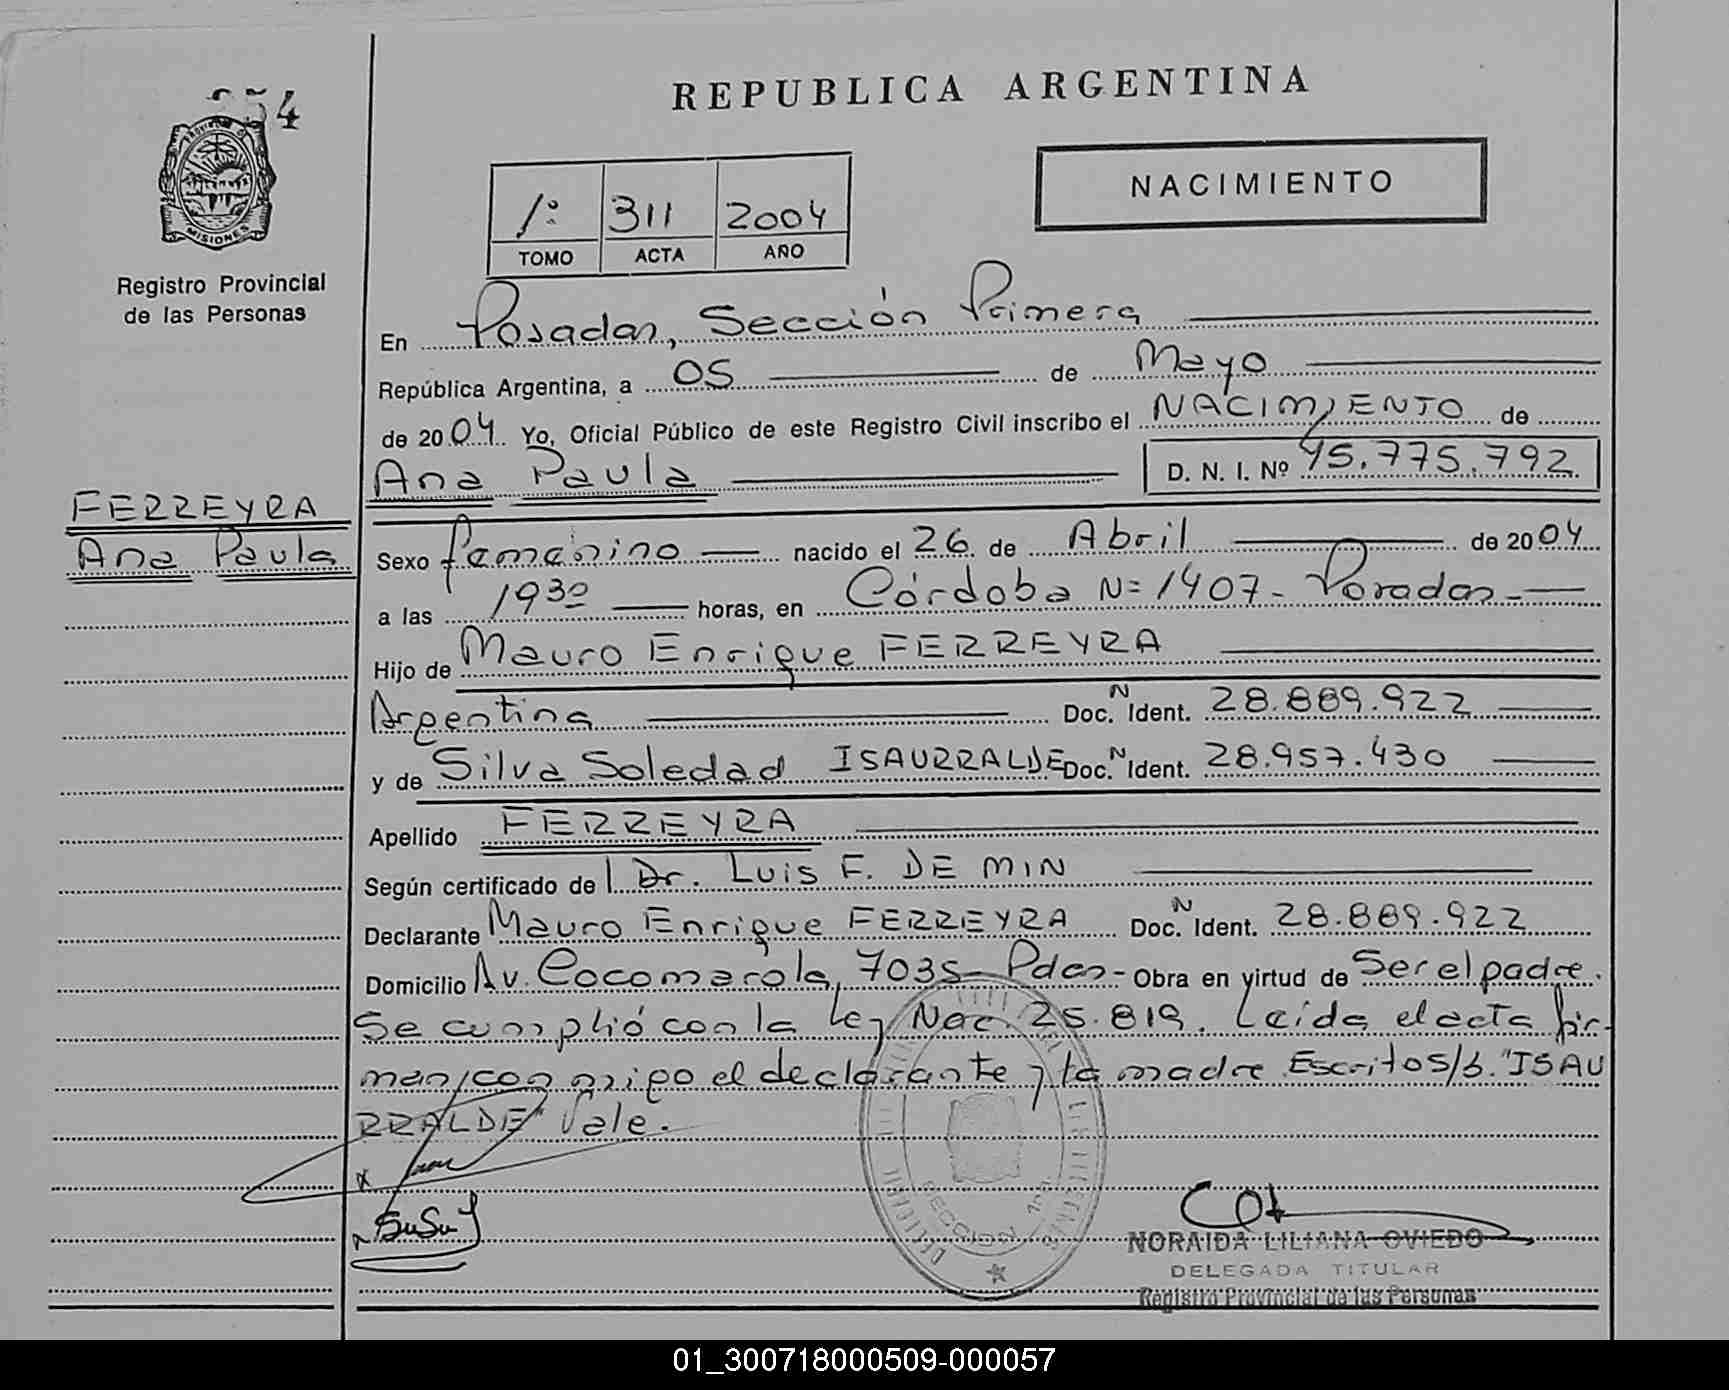 REPUBLICA ARGENTINA
NACIMIENTO
1º 311 2004
TOMO ACTA AÑO
MISIONES
Registro Provincial
de las Personas
En Posadas, Sección Primera
República Argentina, a 05 de Mayo
de 2004 Yo, Oficial Público de este Registro Civil inscribo el NACIMIENTO de
Ana Paula D. N. I. Nº 45.775.792
FERREYRA
Ana Paula
Sexo femenino nacido el 26 de Abril de 2004
a las 19 30 horas, en Córdoba Nº 1407 - Posadas -
Hijo de Mauro Enrique FERREYRA
Argentina Doc. N Ident. 28.889.922
y de Silva Soledad ISAURRALDE Doc. N Ident. 28.957.430
Apellido FERREYRA
Según certificado de l Dr. Luis F. DE MIN
Declarante Mauro Enrique FERREYRA Doc. N Ident. 28.889.922
Domicilio Av. Cocomarola 7035 - Pdas - Obra en virtud de Ser el padre.
Se cumplió con la Ley Nac. 25.819. Leída el acta fir-
man con migo el declarante y la madre Escrito s/b. "ISAU
RRALDE" Vale.
SECCION 1ra
NORAIDA LILIANA OVIEDO
DELEGADA TITULAR
Registro Provincial de las Personas
01_300718000509-000057